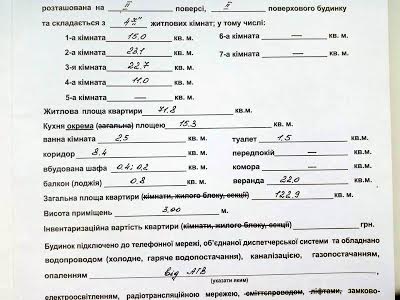 розташована на II поверсі, II поверхового будинку
та складається з 4х житлових кімнат; у тому числі:
1-а кімната 15,0 кв. м. 6-а кімната — кв. м.
2-а кімната 23,1 кв. м. 7-а кімната — кв. м.
3-я кімната 22,7 кв. м.
4-а кімната 11,0 кв. м.
5-а кімната — кв. м.
Житлова площа квартири 71,8 кв.м.
Кухня окрема (загальна) площею 15,3 кв.м.
ванна кімната 2,5 кв. м. туалет 1,5 кв.м.
коридор 8,4 кв. м. передпокій — кв.м.
вбудована шафа 0,4; 0,2 кв. м. комора — кв.м.
балкон (лоджія) 0,8 кв. м. веранда 22,0 кв.м.
Загальна площа квартири (кімнати, жилого блоку, секції) 122,9 кв.м.
Висота приміщень 3,00 м.
Інвентаризаційна вартість квартири (кімнати, жилого блоку, секції) грн.
Будинок підключено до телефонної мережі, об'єднаної диспетчерської системи та обладнано
водопроводом (холодне, гаряче водопостачання), каналізацією, газопостачанням,
опаленням від АГВ
(указати яким)
електроосвітленням, радіотрансляційною мережею, сміттєпроводом, ліфтами, замково-